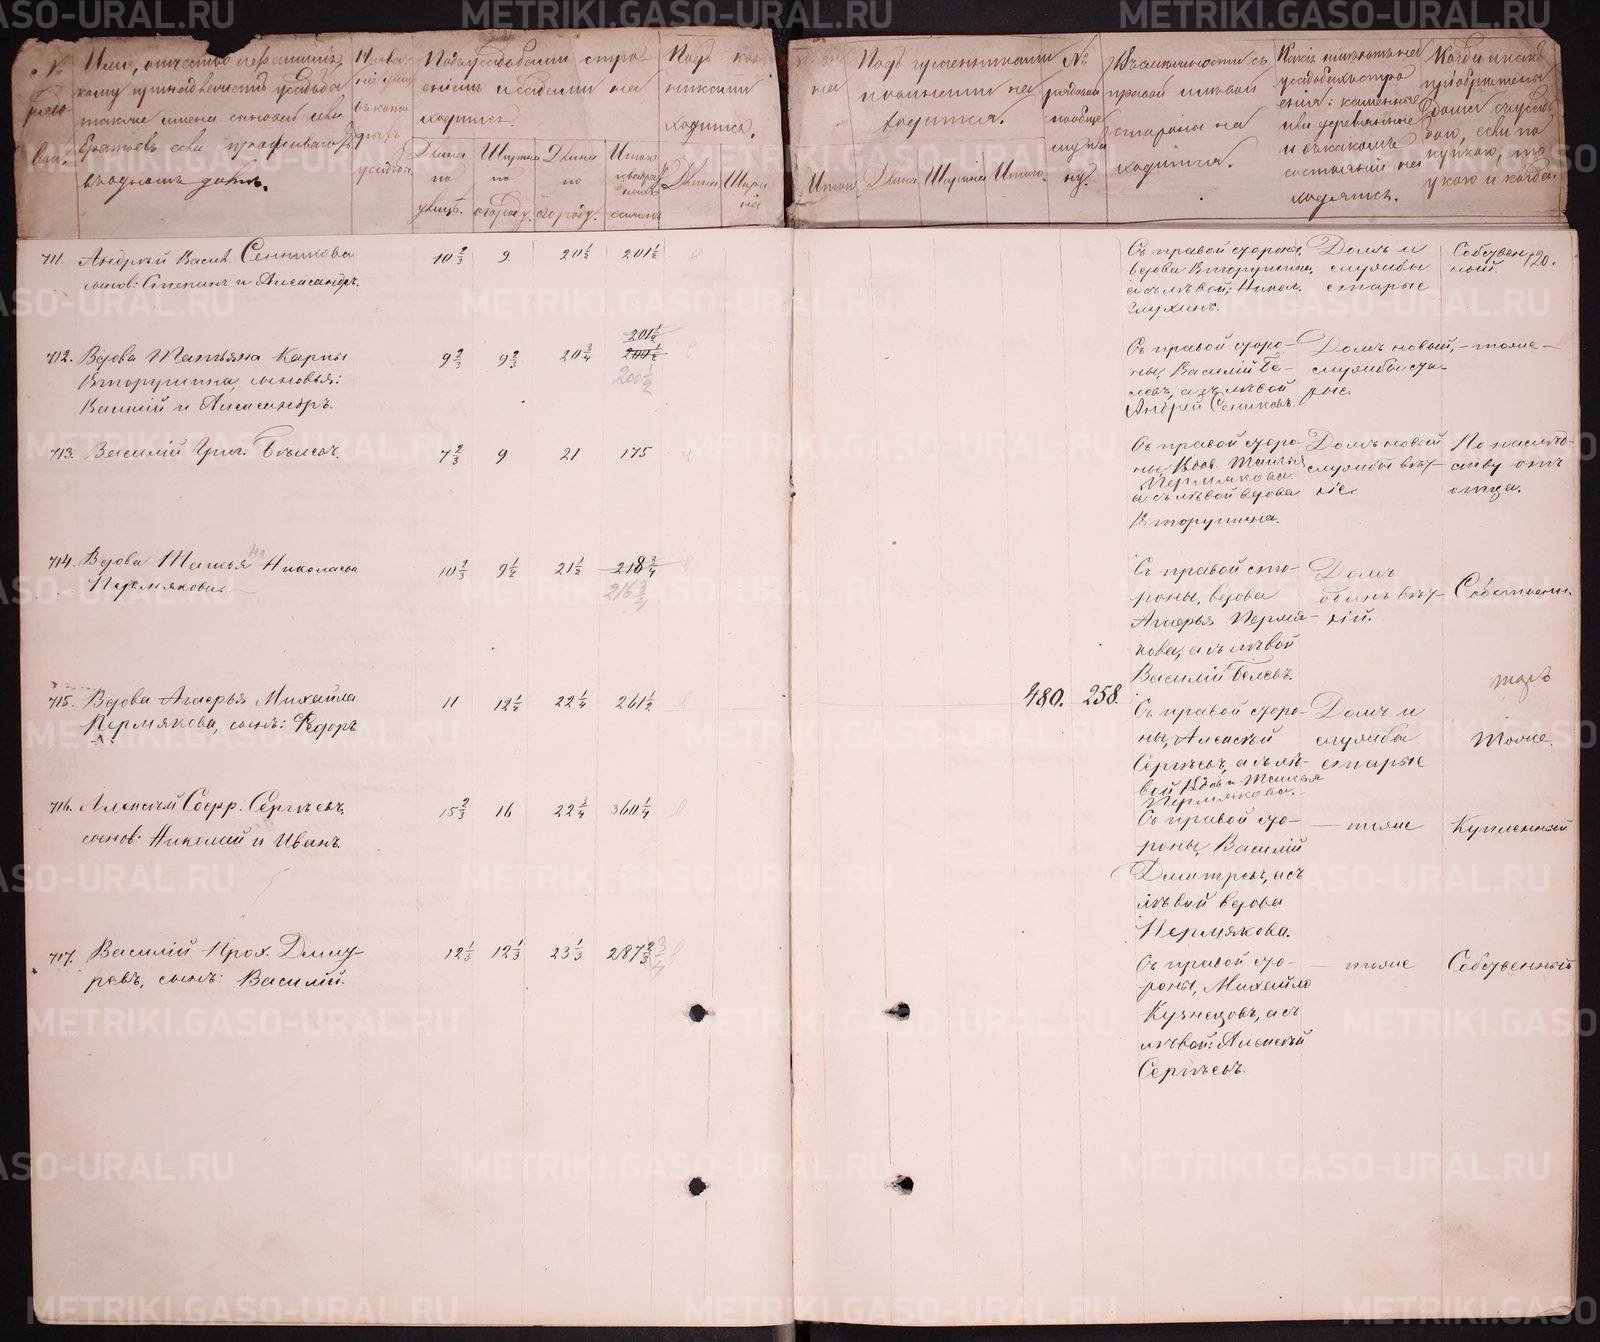 №
рядо-
вой.
Имя, отчество и фамилія,
кому принадлежитъ усадьба
также имена сыновей или
братьевъ если проживаютъ
въ одномъ домѣ.
Назва-
ніе улицъ
въ кото-
рыхъ
усадьба
Подъ усадебнымъ стро-
еніемъ и садами на-
ходится.
Длина
по
улицѣ.
Ширина
по
огороду.
Длина
по
огороду.
Итого
квадрат-
ныхъ
сажень
Подъ ко-
никами
ходится.
Длина
Шири-
на
на
Итого
Подъ гуменниками
на
ходится.
Длина
Ширина
Итого.
№
рядовой
по обще-
му.
Въ смежности съ
правой и лѣвой
стороны на-
ходится.
Какія имѣютъ на
усадьбахъ стро-
енія: каменныя
или деревянныя
и въ какомъ
состояніи на-
ходятся.
Когда и какъ
пріобрѣтена
усадь-
ба, если по-
купкою, то
у кого и когда
711. Андрей Васил. Сенникова
сынов: Степанъ и Александръ.
10 2/3 9 20 1/2 201 1/2
Съ правой стороны,
вдова Вторушина,
а съ лѣвой, Никол.
Глухихъ.
Домъ и
службы
старые
Собствен-
ный
120.
712. Вдова Татьяна Карпы
Вторушина, сыновья:
Василій и Александръ.
9 2/3 9 2/3 20 3/4
201 1/2
200 1/2
200 1/2
Съ правой сторо-
ны, Василій Бѣ-
левъ, а съ лѣвой
Андрей Сениковъ.
Домъ новый,
службы ста-
рые.
- тоже -
713. Василій Григ. Бѣлевъ.
7 2/3 9 21 175
Съ правой сторо-
ны, Вдов. Татья
Пермякова
а съ лѣвой вдова
Вторушина.
Домъ новый
службы вет-
хіе
По наслѣд-
ству отъ
отца.
714. Вдова Татья на Николаева
Пермякова.
10 2/3 9 1/2 21 1/2 218 3/4
216 3/4
Съ правой сто-
роны, вдова
Агафья Пермя-
кова, а съ лѣвой
Василій Белевъ.
Домъ
одинъ вет-
хій.
Собственн.
715. Вдова Агафья Михайла
Пермякова, сынъ: Федоръ
11 12 1/4 22 1/4 261 1/2
480. 258.
Съ правой сторо-
ны, Алексѣй
Сергѣевъ, а съ лѣ-
вой Вдова Татья
Пермякова.
Домъ и
службы
старые
тожъ
Тоже.
716. Алексѣй Софр. Сергѣевъ,
сынов: Николай и Иванъ.
15 2/3 16 22 3/4 360 1/4
Съ правой сто-
роны, Василій
Дмитревъ, а съ
лѣвой вдова
Пермякова.
- тоже
Купленный
717. Василій Прох. Дмит-
ревъ, сынъ: Василій.
12 1/3 12 1/3 23 1/3 287 2/3 3/4
Съ правой сто-
роны, Михайло
Кузнецовъ, а съ
лѣвой: Алексѣй
Сергѣевъ.
- тоже
Собственный
METRIKI.GASO-URAL.RU